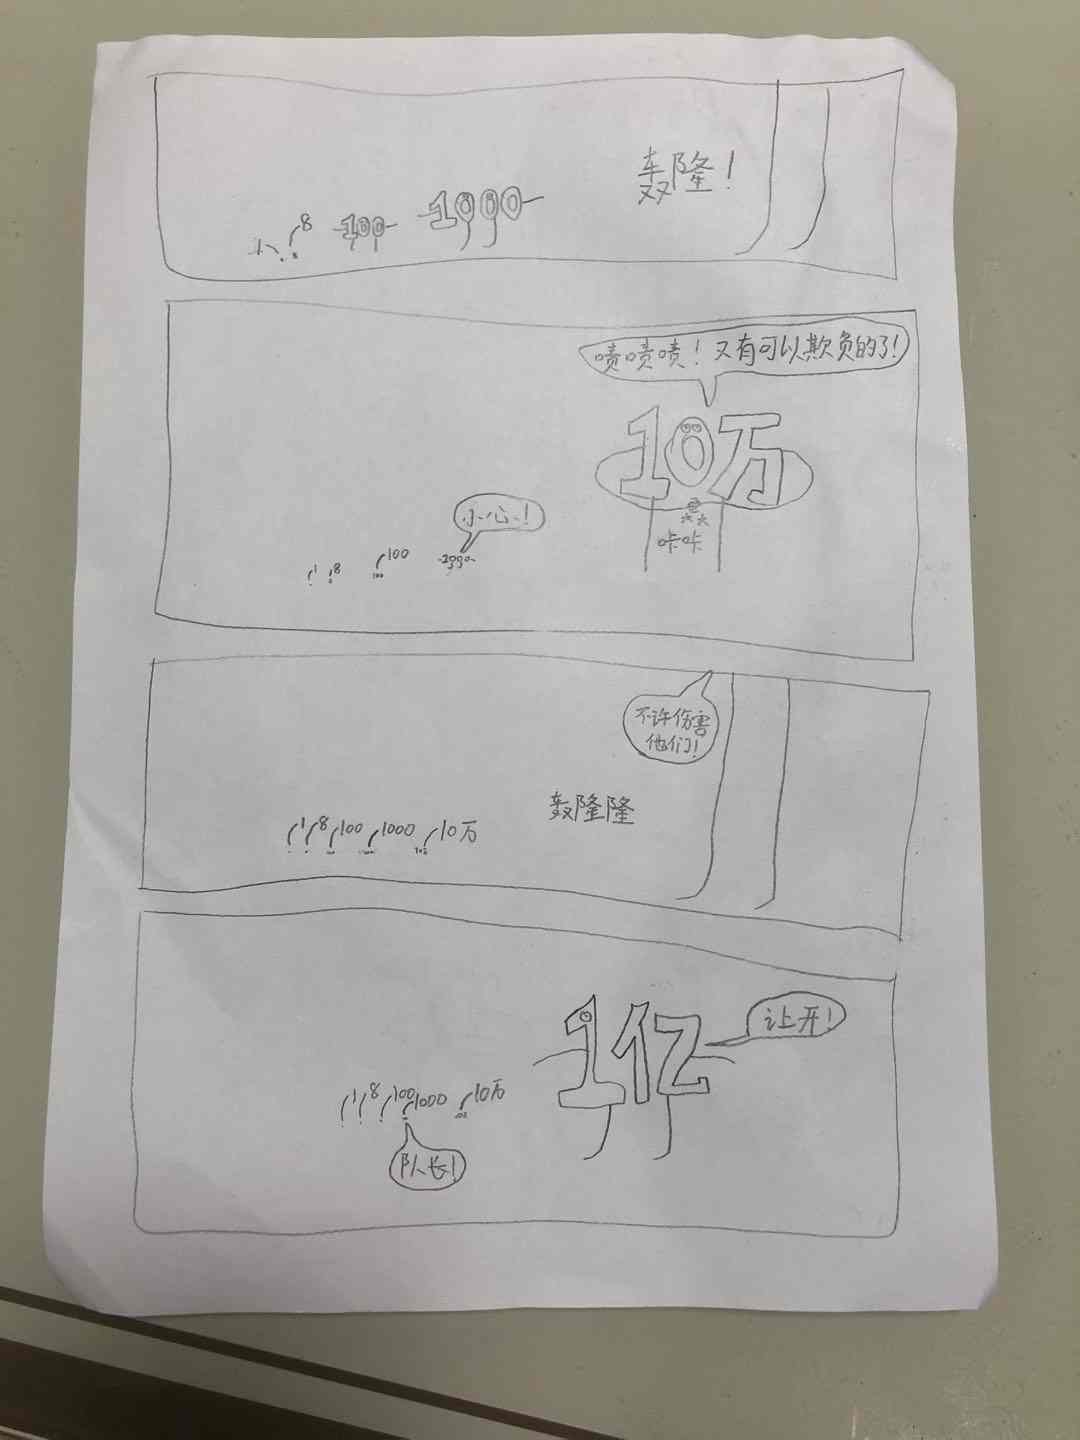 8
100
1000
轰隆！
啧啧啧！又有可以欺负的了！
10万
小心！
1
8
100
咔咔
不许伤害
他们！
轰隆隆
1
8
100
1000
10万
1亿
让开！
1
8
100
1000
10万
队长！